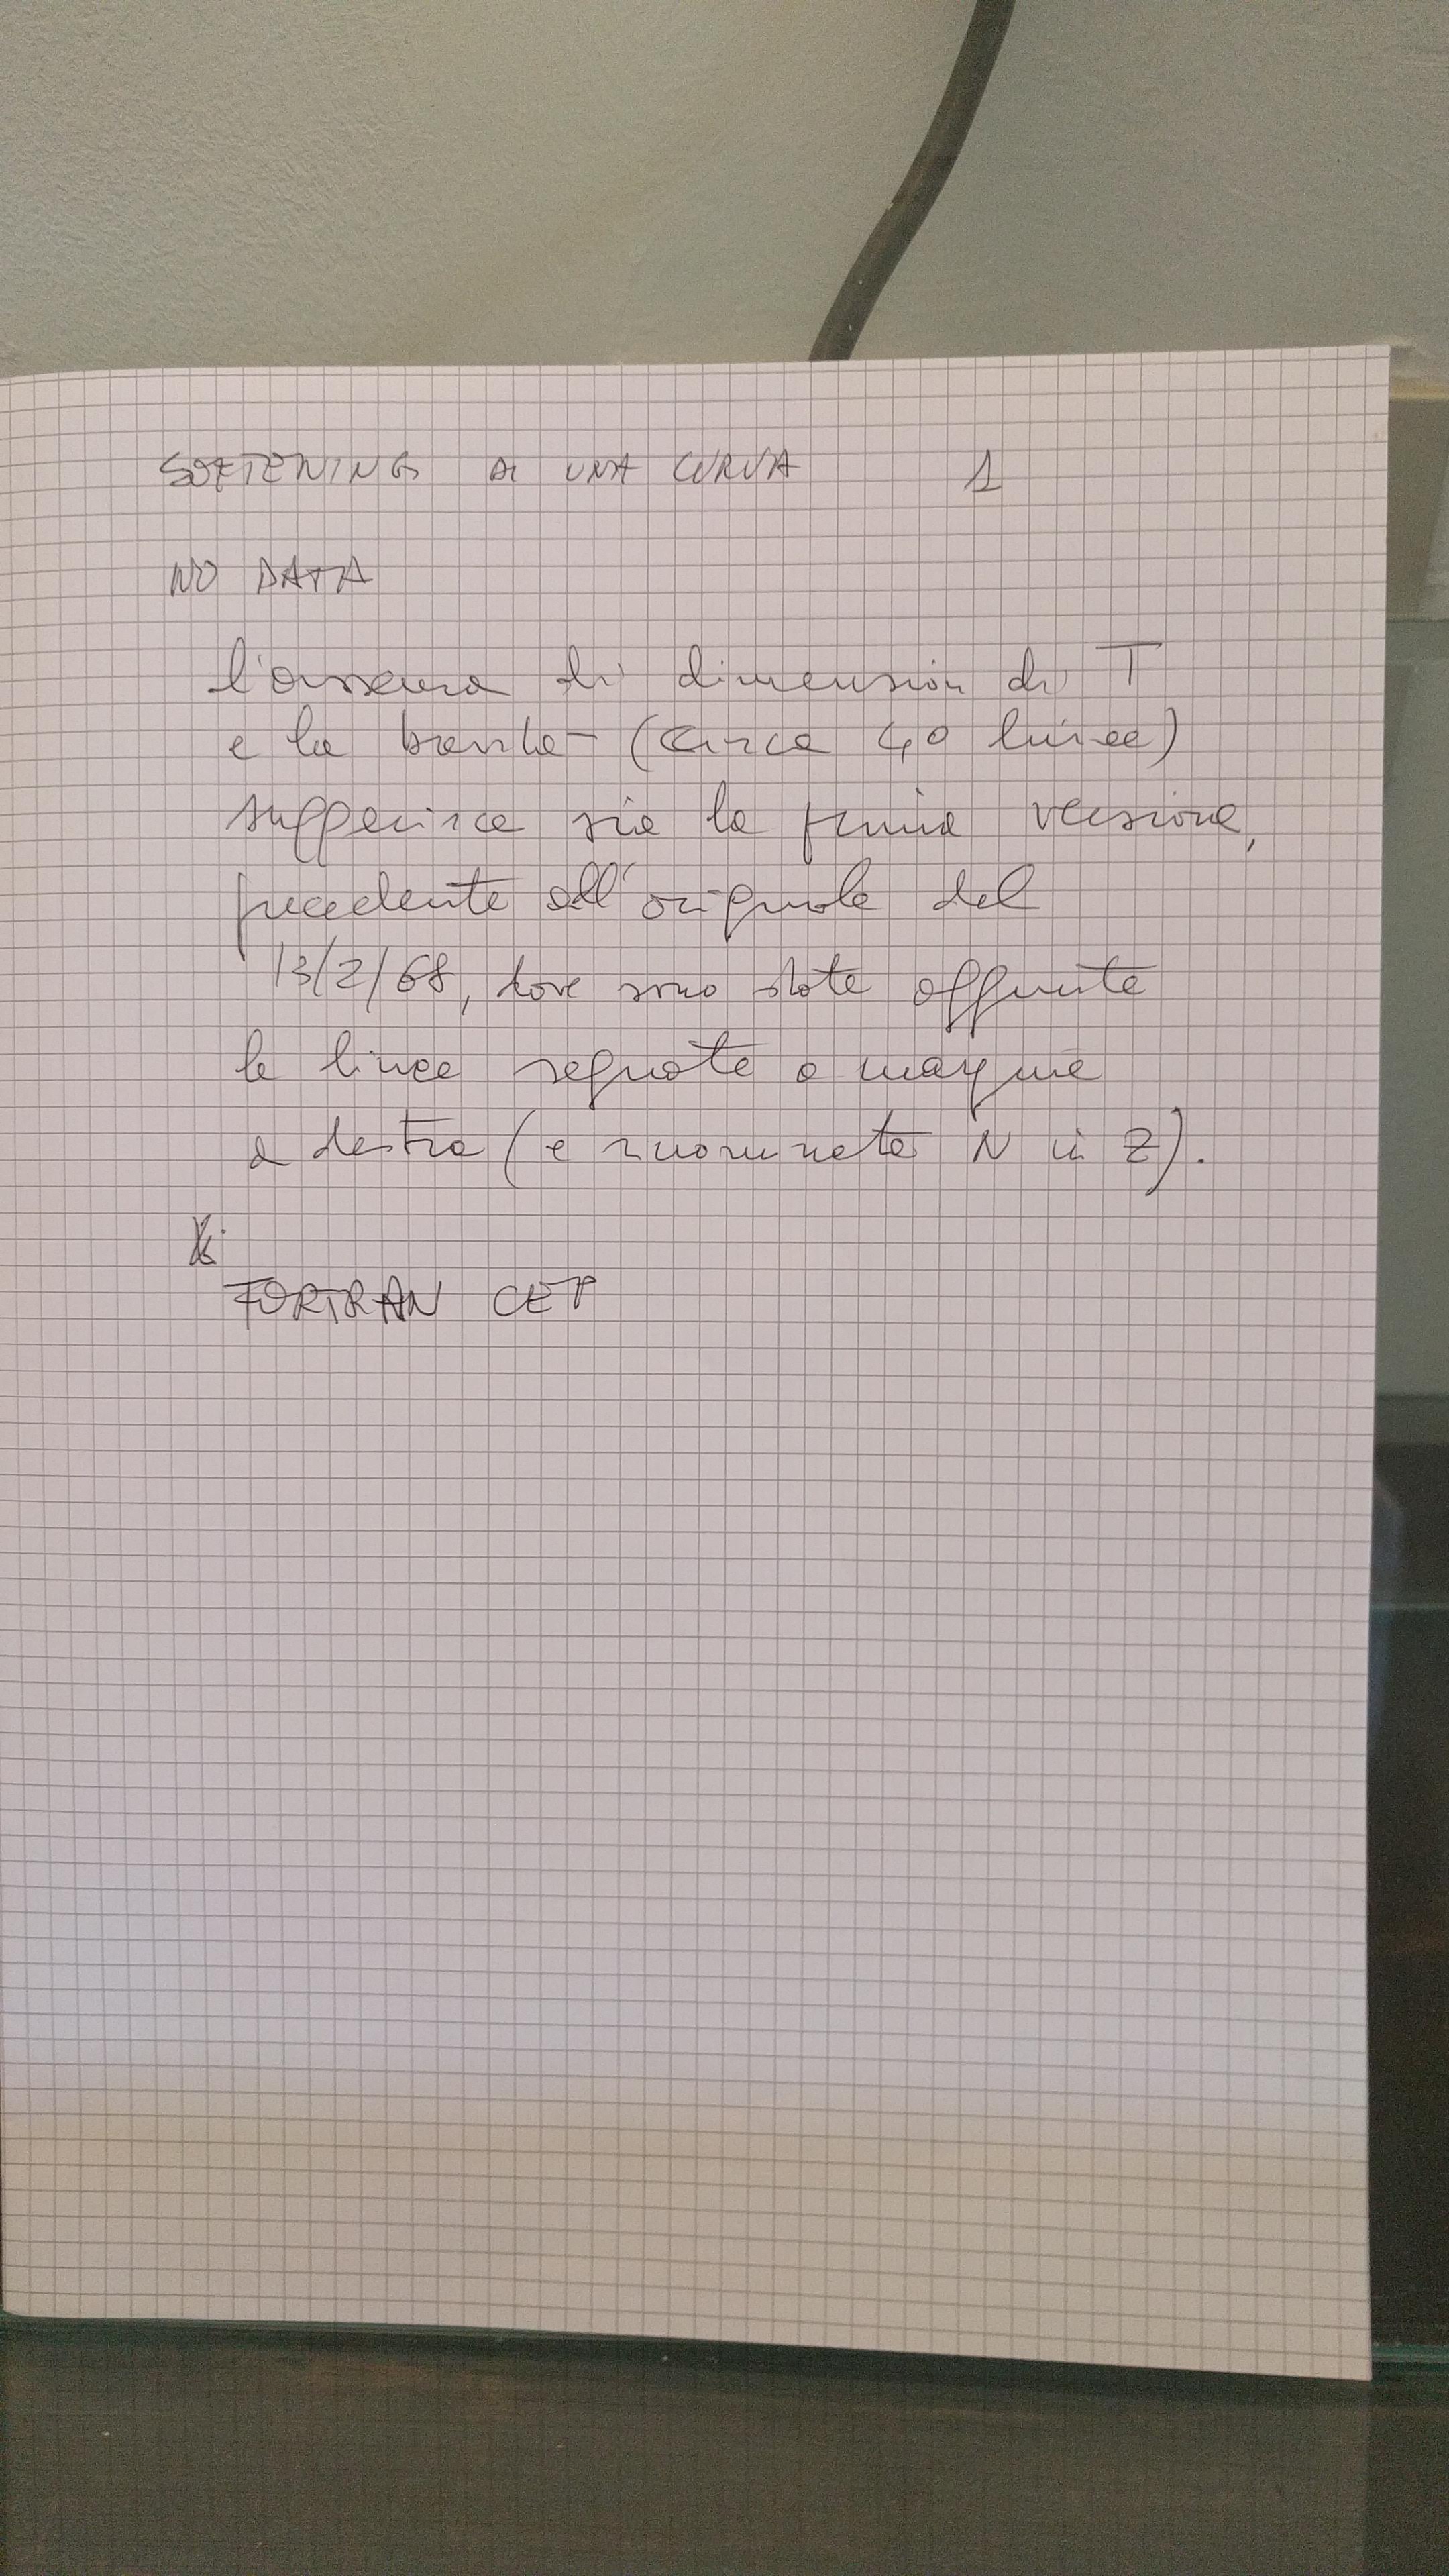 SOFTENING DI UNA CURVA 1
NO DATA
l'assenza di dimension di T
e la (circa 40 linee)
suggerisce sia la prima versione,
precedente all'originale del
13/2/68, dove sono state aggiunte
le linee segnate a margine
a destra (e rinominata N in Z).
FORTRAN CEP